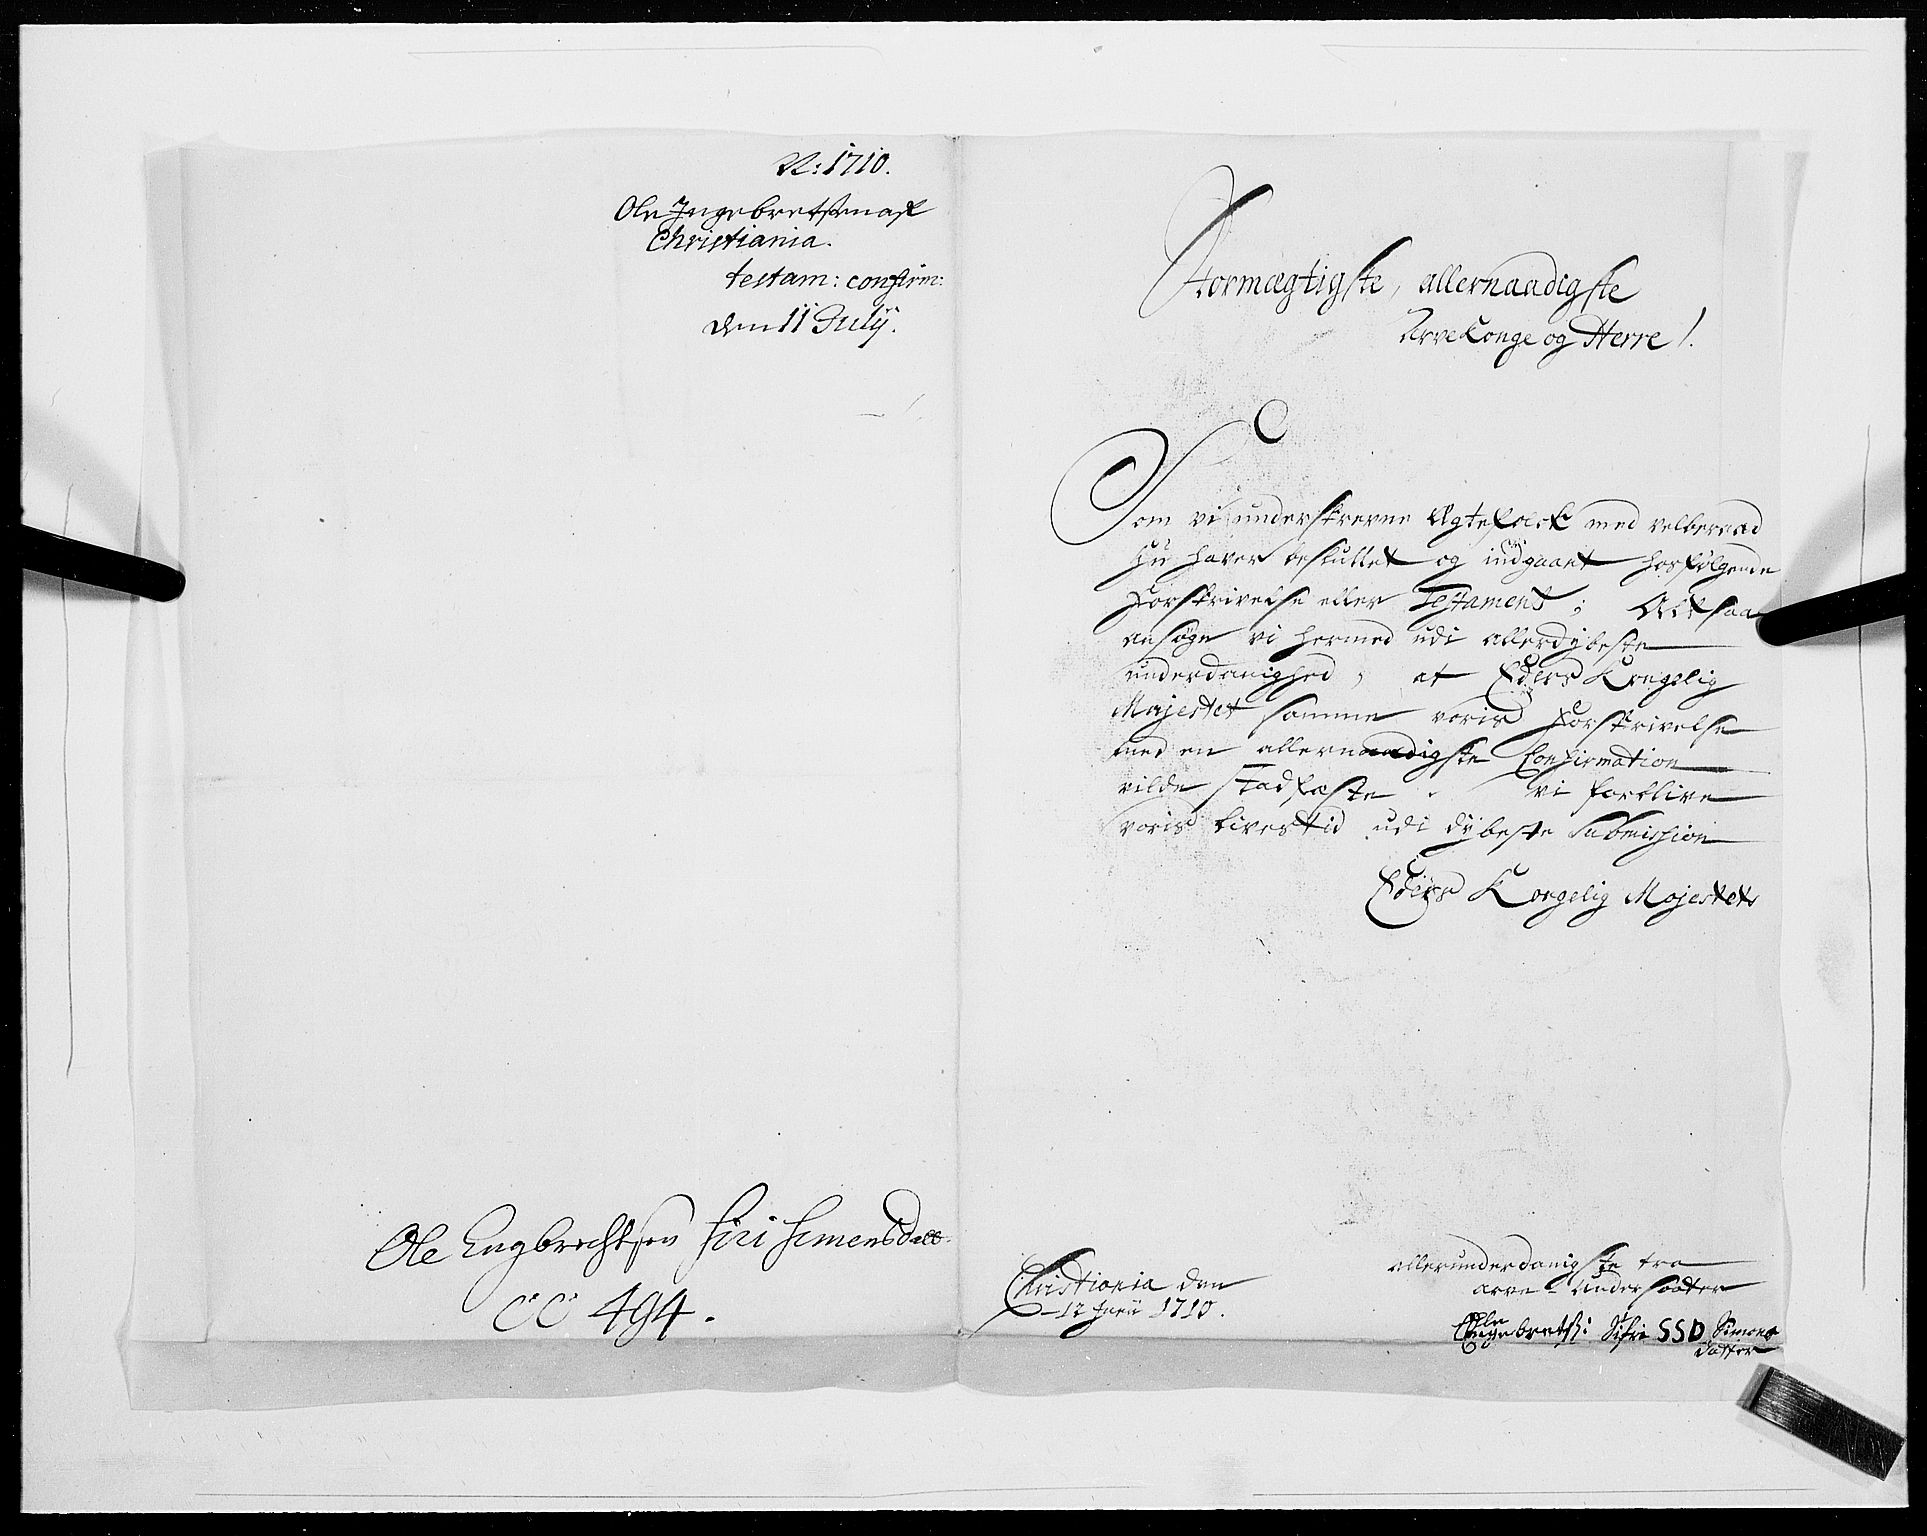 A: 1710.
Ole Ingebretsen af
Christiania.
testam: confirm:
den 11 July.
Ole Engbrechtsen Siri Simensdatt.
CC 494.
Stormægtigste, allernaadigste
ArveKonge og Herre!
Som vi underskrevne Ægtefolck med velberaad
Hu haver besluttet og indgaaet hosfølgende
Forskrivelse eller Testament; Altsaa
ansøge vi hermed udi allerdybeste
underdanighed, at Eders Kongelig
Majestet samme voris Forskrivelse
med en allernaadigste Confirmation
vilde stadfæste. Vi forblive
voris livestid udi dybeste Submission
Eders Kongelig Majestets
allerunderdanigste tro
arve-Undersaatter
Ole
Engebretss: Sifri SSD Simons
datter
Christiania den
12 Junii 1710.